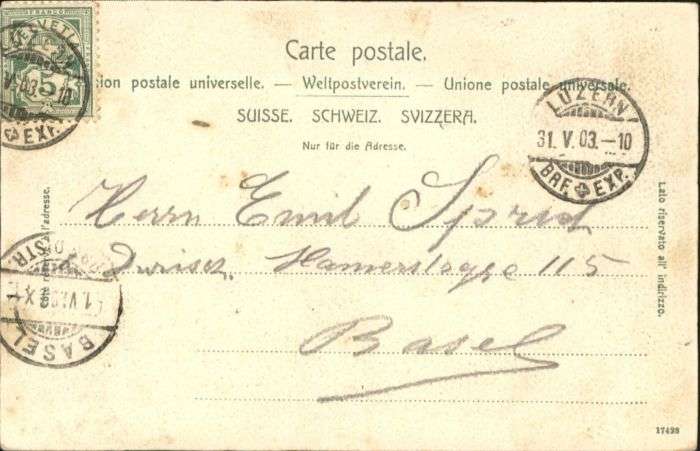 HELVETIA
FRANCO
5
V. 03. - 10
EXP.
Carte postale.
ion postale universelle. — Weltpostverein. — Unione postale universale.
SUISSE. SCHWEIZ. SVIZZERA.
Nur für die Adresse.
LUZERN
31. V. 03. - 10
BRF. EXP.
Côté réservé à l'adresse.
Lato riservato all' indirizzo.
Herrn Emil
115
Basel
1. VI. 03
BASEL
17428